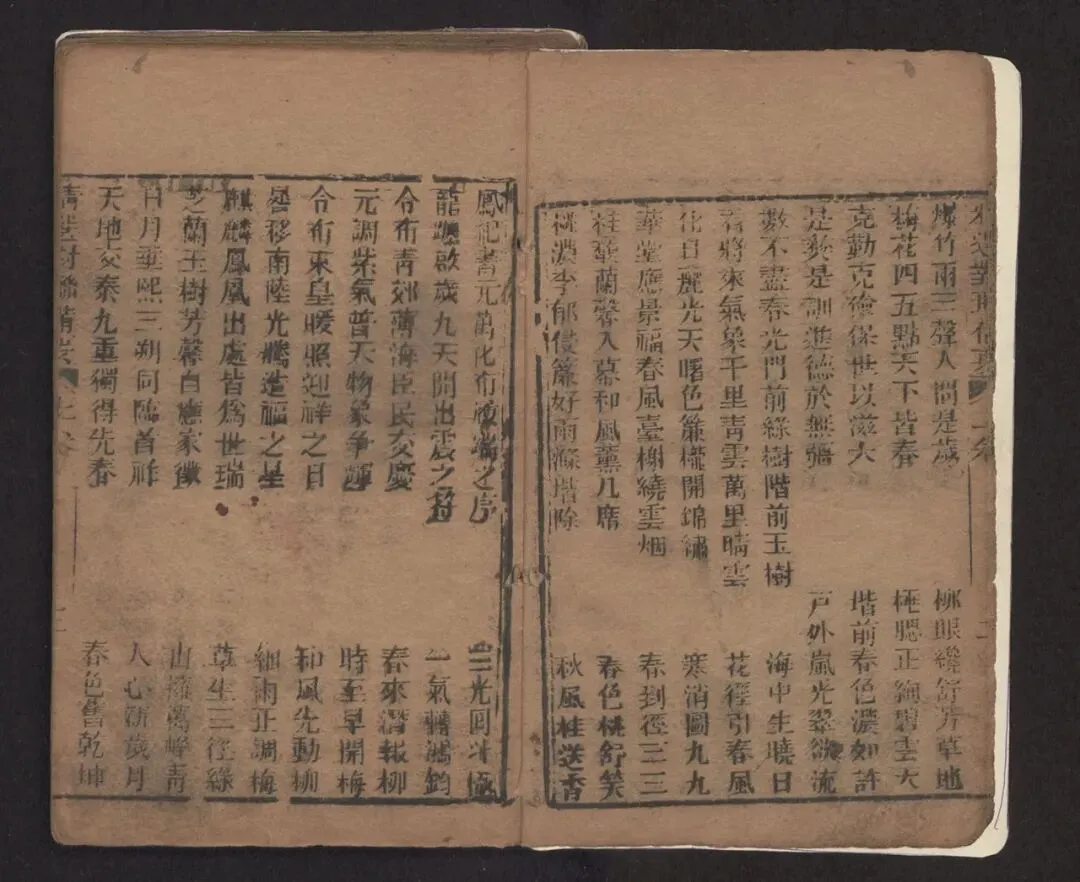 爆竹兩三聲人間是歲
梅花四五點天下皆春
克勤克儉保世以滋大
是彝是訓進德於無疆
數不盡春光門前綠樹階前玉樹
看將來氣象千里靑雲萬里晴雲
化日麗光天曙色簾櫳開錦繡
華堂應景福春風臺榭繞雲烟
桂馥蘭馨入幕和風薰几席
桃濃李郁侵簾好雨滌堦除
柳眼纔舒芳草地
正絢碧雲天
堦前春色濃如許
戶外嵐光翠欲流
海中生曉日
花徑引春風
寒消圖九九
春到徑三三
春色桃舒笑
秋風桂送香
鳳紀書元萬化布之序
龍躔啟歲九天開出震之符
令布靑郊薄海臣民交慶
元調紫氣普天物象爭輝
令布東皇暖照迎祥之日
晷移南陸光騰造福之星
麒麟鳳凰出處皆爲世瑞
芝蘭玉樹芳馨自應家徵
日月重熙三朔同臨首祚
天地交泰九重獨得先春
三光回斗極
一氣轉鴻鈞
春來潛報柳
時至早開梅
和風先動柳
細雨正調梅
草生三徑綠
山擁萬峰靑
人心新歲月
春色舊乾坤